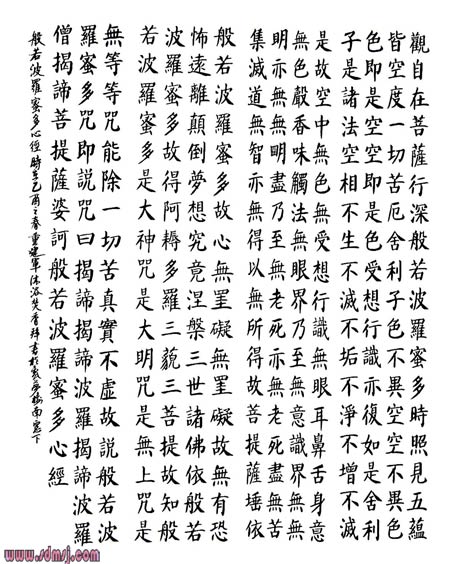 觀自在菩薩行深般若波羅蜜多時照見五蘊
皆空度一切苦厄舍利子色不異空空不異色
色即是空空即是色受想行識亦復如是舍利
子是諸法空相不生不滅不垢不淨不增不減
是故空中無色無受想行識無眼耳鼻舌身意
無色聲香味觸法無眼界乃至無意識界無無
明亦無無明盡乃至無老死亦無老死盡無苦
集滅道無智亦無得以無所得故菩提薩埵依
般若波羅蜜多故心無罣礙無罣礙故無有恐
怖遠離顛倒夢想究竟涅槃三世諸佛依般若
波羅蜜多故得阿耨多羅三藐三菩提故知般
若波羅蜜多是大神咒是大明咒是無上咒是
無等等咒能除一切苦真實不虛故說般若波
羅蜜多咒即說咒曰揭諦揭諦波羅揭諦波羅
僧揭諦菩提薩婆訶般若波羅蜜多心經
般若波羅蜜多心經時在乙酉之春建軍沐浴焚香拜書於南窗下
www.sdmsj.com